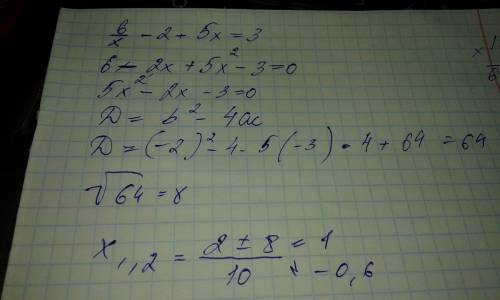 6/x - 2 + 5x = 3
6 - 2x + 5x² - 3 = 0
5x² - 2x - 3 = 0
D = b² - 4ac
D = (-2)² - 4 - 5(-3) • 4 + 64 = 64
√64 = 8
x₁,₂ = (2 ± 8)/10 = 1
↓ -0,6